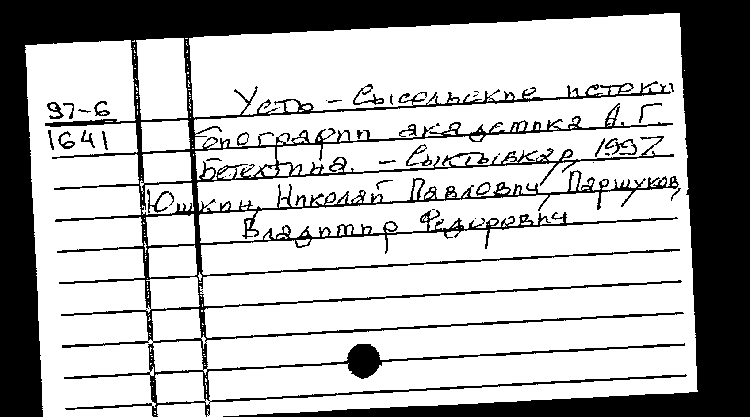 97-6
1641
Усть - Сысольские истоки
топографии академика А. Г.
Бетехтина. - Сыктывкар, 1997.
Юшкин, Николай Павлович, Паршуков,
Владимир Федорович